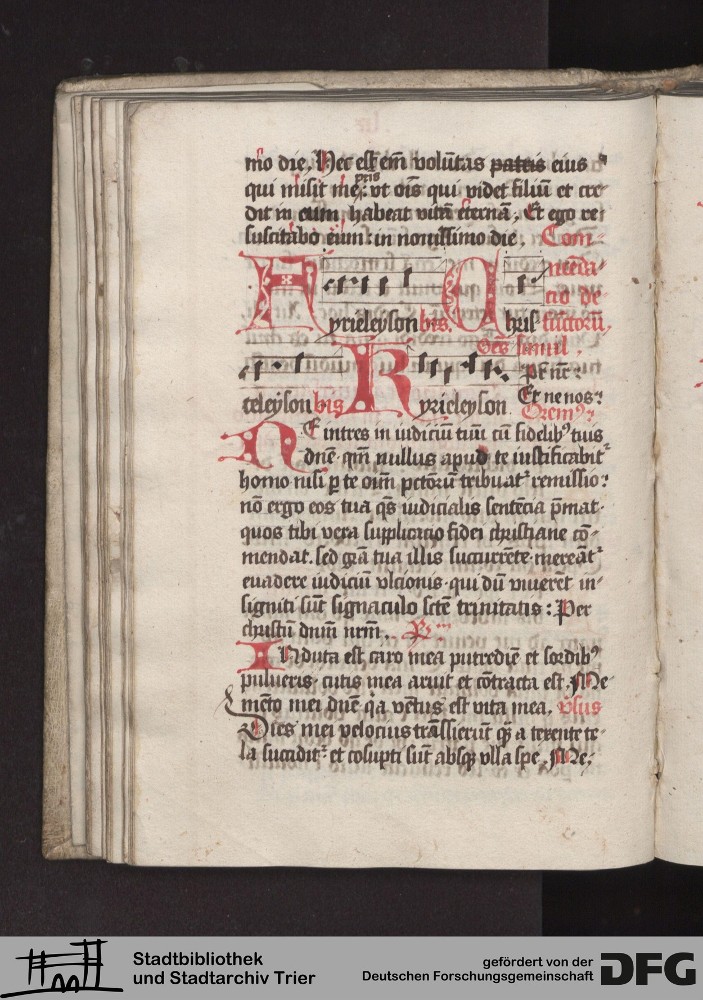 mo die, Hec est em̄ volūtas patris eius
qui misit me, pr̄is vt oīs qui videt filiū et cre
dit in eum habeat vitā eternā, Et ego re
suscitabo eum: in nouissimo die. Com
menda
cio de
Kyrieleyson bis. Chris functorū
Oēs simul.
Pr̄ nr̄:
Et ne nos:
teleyson bis Kyrieleyson
Oremꝰ
Ne intres in iudiciū tuū cū fidelibꝰ tuis
dnē qm̄ nullus apud te iustificabitᷣ
homo nisi p te oīm pctōrū tribuatᷣ remissio:
nō ergo eos tua qs̄ iudicialis sentēcia p̄mat
quos tibi vera supplicacio fidei christiane cō
mendat. sed grā tua illis succurrēte mereātᷣ
euadere iudiciū vlcionis qui dū viuerēt in
signiti sūt signaculo scte trinitatis: Per
christū dnm̄ nrm̄.
Induta est caro mea putredīe et sordibꝰ
pulueris cutis mea aruit et cōtracta est, Me
mēto mei dnē qa vētus est vita mea. vsus
Dies mei velocius trāssierūt qͣ a texente te
la succiditᷣ et cōsūpti sūt absqꝫ vlla spe, Me,
Stadtbibliothek
und Stadtarchiv Trier
gefördert von der
Deutschen Forschungsgemeinschaft
DFG